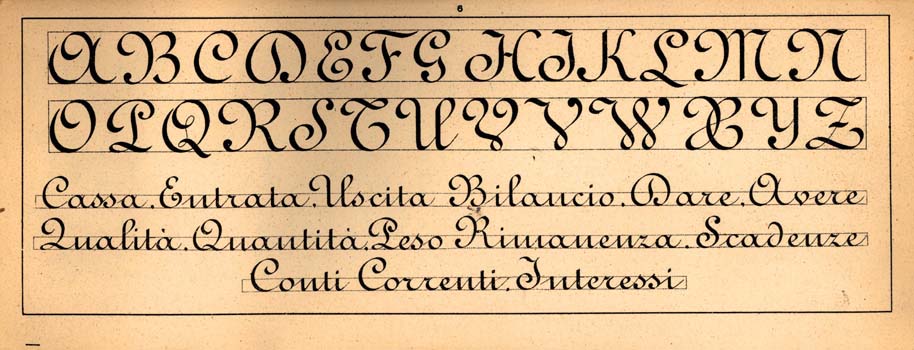 6
A B C D E F G H I K L M N
O P Q R S T U V V W X Y Z
Cassa. Entrata. Uscita Bilancio. Dare. Avere
Qualità. Quantità. Peso Rimanenza. Scadenze
Conti Correnti. Interessi